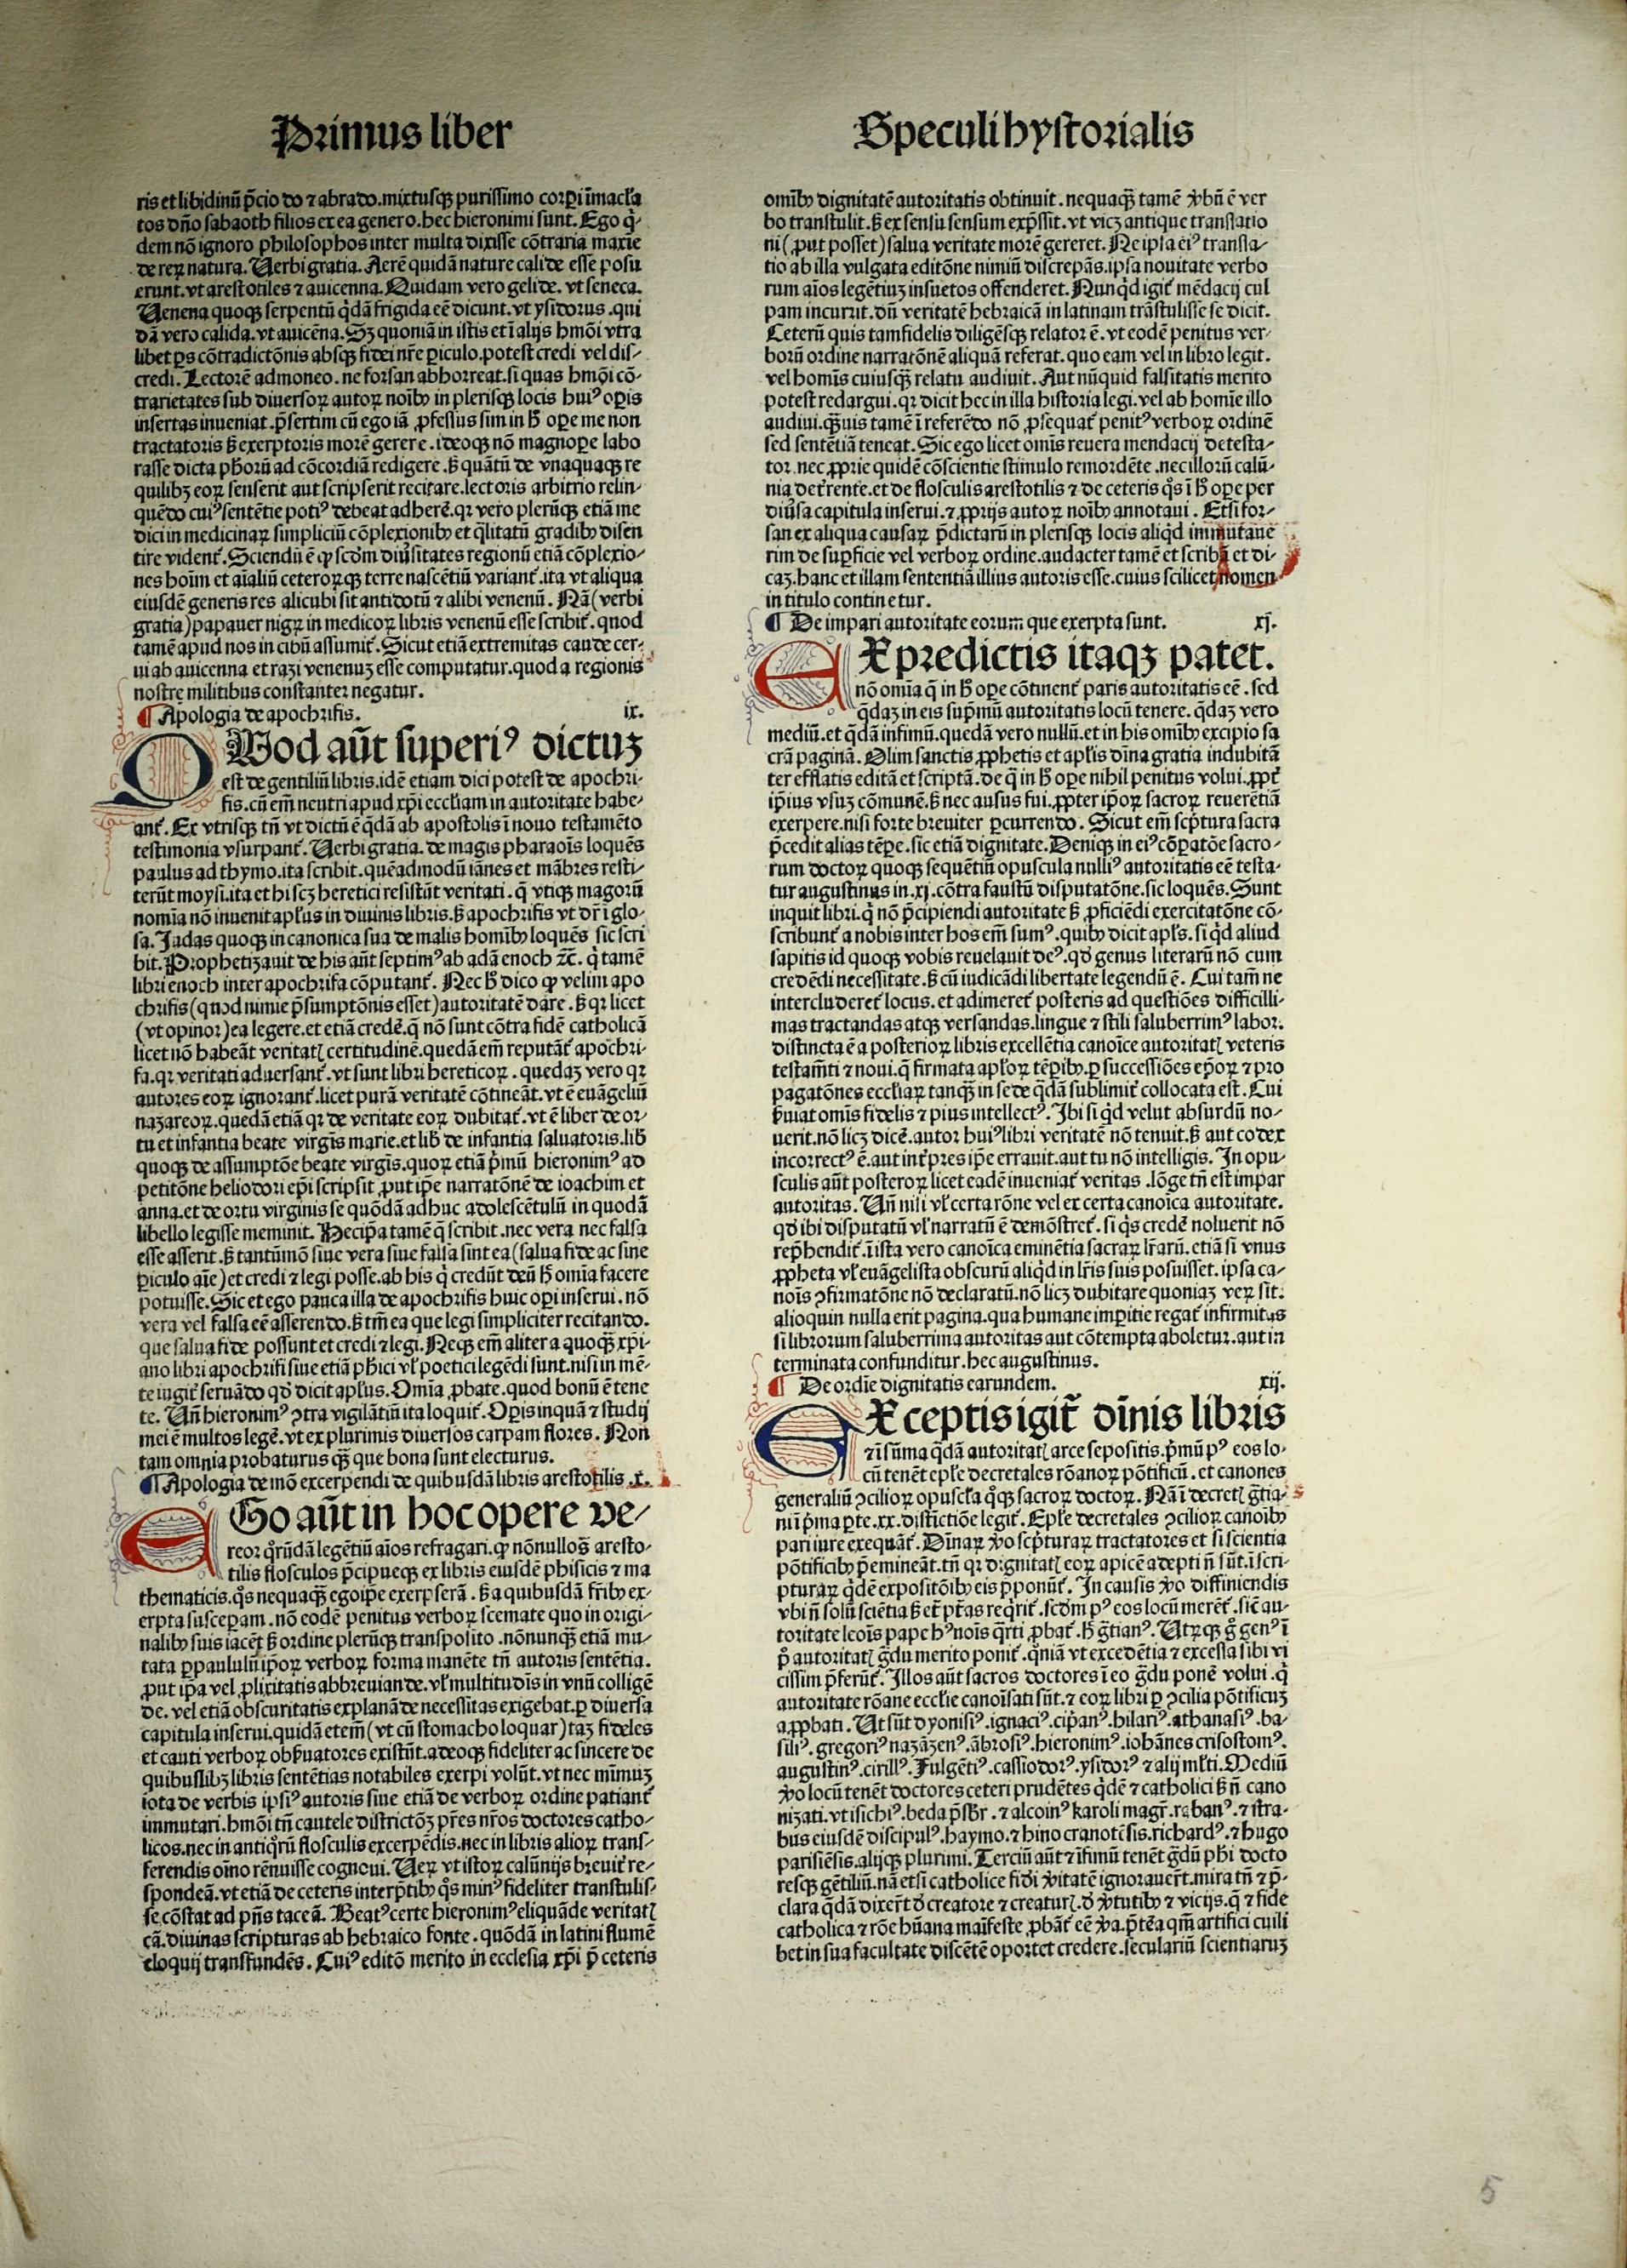 Primus liber
Speculi hystorialis
ris et libidinū p̄cio do ⁊ abrado. mixtusq; purissimo corpi īmacl̓a
tos dn̄o sabaoth filios ex ea genero. hec hieronimi sunt. Ego q̇-
dem nō ignoro philosophos inter multa dixisse cōtraria maxīe
de reꝝ natura. Uerbi gratia. Aerē quidā nature calide esse posu
erunt. vt arestotiles ⁊ auicenna. Quidam vero gelide. vt seneca.
Uenena quoq; serpentū q̇dā frigida eē dicunt. vt ysidorus. qui
dā vero calida. vt auicēna. Sꝫ quoniā in istis et ī alijs hmōi vtra
libet ꝑs cōtradictōnis absq; fidei nr̄e ꝑiculo. potest credi vel dis-
credi. Lectorē admoneo. ne forsan abhorreat. si quas hmōi cō-
trarietates sub diuersoꝝ autoꝝ noībꝰ in plerisq; locis huiꝰ oꝑis
insertas inueniat. p̄sertim cū ego iā ꝓfessus sim in h̓ oꝑe me non
tractatoris s̓ exerptoris morē gerere. ideoq; nō magnoꝑe labo
rasse dicta ph̓orū ad cōcordiā redigere. s̓ quātū de vnaquaq; re
quilibꝫ eoꝝ senserit aut scripserit recitare. lectoris arbitrio relin-
quēdo cuiꝰ sentētie potiꝰ debeat adherē. qꝛ vero plerūq; etiā me
dici in medicinaꝝ simpliciū cōplexionibꝰ et q̄litatū gradibꝰ disen
tire vident᷑. Sciendū ē ꝙ scdm̄ diu̓sitates regionū etiā cōplexio-
nes hoīm et aīaliū ceteroꝝq; terre nascētiū variant᷑. ita vt aliqua
eiusdē generis res alicubi sit antidotū ⁊ alibi venenū. Nā (verbi
gratia) papauer nigꝝ in medicoꝝ libris venenū esse scribit᷑. quod
tamē apud nos in cibū assumit᷑. Sicut etiā extremitas caude cer-
ui ab auicenna et razi venenuꝫ esse computatur. quod a regionis
nostre militibus constanter negatur.
¶ Apologia de apochrifis. ix.
QUod aūt superiꝰ dictuꝫ
est de gentiliū libris. idē etiam dici potest de apochri-
fis. cū em̄ neutri apud xp̄i eccl̓iam in autoritate habe-
ant᷑. Ex vtrisq; tn̄ vt dictū ē q̄dā ab apostolis ī nouo testamēto
testimonia vsurpant᷑. Uerbi gratia. de magis pharaoīs loquēs
paulus ad thymo. ita scribit. quēadmodū iānes et mābres resti-
terūt moysi. ita et hi scꝫ heretici resistūt veritati. q̄ vtiq; magorū
nomīa nō inuenit apl̓us in diuinis libris. s̓ apochrifis vt dr̄ ī glo-
sa. Judas quoq; in canonica sua de malis homībꝰ loquēs sic scri
bit. Prophetizauit de his aūt septimꝰ ab adā enoch ⁊c̄. q̇ tamē
libri enoch inter apochrifa cōputant᷑. Nec h̓ dico ꝙ velim apo
chrifis (quod nimie p̄sumptōnis esset) autoritatē dare. s̓ qꝛ licet
(vt opinor) ea legere. et etiā credē. q̄ nō sunt cōtra fidē catholicā
licet nō habeāt veritatꝭ certitudinē. quedā em̄ reputāt᷑ apochri-
fa. qꝛ veritati aduersant᷑. vt sunt libri hereticoꝝ. quedaꝫ vero qꝛ
autores eoꝝ ignorant᷑. licet purā veritatē cōtineāt. vt ē euāgeliū
nazareoꝝ. quedā etiā qꝛ de veritate eoꝝ dubitat᷑. vt ē liber de or-
tu et infantia beate virgīs marie. et lib̓ de infantia saluatoris. lib̓
quoq; de assumptōe beate virgīs. quoꝝ etiā p̓mū hieronimꝰ ad
petitōne heliodori ep̄i scripsit ꝓut ip̄e narratōnē de ioachim et
anna. et de ortu virginis se quōdā adhuc adolescētulū in quodā
libello legisse meminit. Hec ip̄a tamē q̄ scribit. nec vera nec falsa
esse asserit. s̓ tantūmō siue vera siue falsa sint ea (salua fide ac sine
ꝑiculo aīe) et credi ⁊ legi posse. ab his q̇ credūt deū h̓ omīa facere
potuisse. Sic et ego pauca illa de apochrifis huic oꝑi inserui. nō
vera vel falsa eē asserendo. s̓ tm̄ ea que legi simpliciter recitando.
que salua fide possunt et credi ⁊ legi. Neq; em̄ aliter a quoq̄ xp̄i-
ano libri apochrifi siue etiā ph̓ici vl̓ poetici legēdi sunt. nisi in mē-
te iugit᷑ seruādo qd̓ dicit apl̓us. Omīa ꝓbate. quod bonū ē tene
te. Un̄ hieronimꝰ ↄtra vigilātiū ita loquit᷑. Oꝑis inquā ⁊ studij
mei ē multos legē. vt ex plurimis diuersos carpam flores. Non
tam omnia probaturus q̄ꝫ que bona sunt electurus.
¶ Apologia de mō excerpendi de quibusdā libris arestotilis. x.
EGo aūt in hoc opere ve-
reor qꝛūdā legētiū aīos refragari. ꝙ nōnullos aresto-
tilis flosculos p̄cipueq; ex libris eiusdē phisicis ⁊ ma
thematicis. q̊s nequaq̄ꝫ ego ip̄e exerpserā. s̓ a quibusdā fr̄ibꝰ ex-
erpta susceꝑam. nō eodē penitus verboꝝ scemate quo in origi-
nalibꝰ suis iacēt s̓ ordine plerūq; transposito. nōnunq̄ꝫ etiā mu-
tata ꝑpaululū ip̄oꝝ verboꝝ forma manēte tn̄ autoris sentētia.
ꝓut ip̄a vel ꝓlixitatis abbreuiande. vl̓ multitudīs in vnū colligē
de. vel etiā obscuritatis explanāde necessitas exigebat. ꝑ diuersa
capitula inserui. quidā etem̄ (vt cū stomacho loquar) taꝫ fideles
et cauti verboꝝ obs̓uatores existūt. adeoq; fideliter ac sincere de
quibuslibꝫ libris sentētias notabiles exerpi volūt. vt nec mīmuꝫ
iota de verbis ipsiꝰ autoris siue etiā de verboꝝ ordine patiant᷑
immutari. hmōi tn̄ cautele districtōꝫ pr̄es nr̄os doctores catho-
licos. nec in antiq̊rū flosculis excerpēdis. nec in libris alioꝝ trans-
ferendis oīno rēnuisse cognoui. Ueꝝ vt istoꝝ calūnijs breuit᷑ re-
spondeā. vt etiā de ceteris interp̄tibꝰ q̊s minꝰ fideliter transtulis-
se cōstat ad pn̄s taceā. Beatꝰ certe hieronimꝰ eliquāde veritatꝭ
cā. diuinas scripturas ab hebraico fonte. quōdā in latini flumē
eloquij transfundēs. Cuiꝰ editō merito in ecclesia xp̄i p̄ ceteris
omībꝰ dignitatē autoritatis obtinuit. nequaq̄ꝫ tamē v̓bū ē ver
bo transtulit. s̓ ex sensu sensum exp̄ssit. vt vicꝫ antique translatio
ni (ꝓut posset) salua veritate morē gereret. Ne ipsa eiꝰ transla-
tio ab illa vulgata editōne nimiū discrepās. ipsa nouitate verbo
rum aīos legētiuꝫ insuetos offenderet. Nunq̇d igit᷑ mēdacij cul
pam incurrit. dū veritatē hebraicā in latinam trāstulisse se dicit.
Ceterū quis tamfidelis diligēsq; relator ē. vt eodē penitus ver-
borū ordine narratōnē aliquā referat. quo eam vel in libro legit.
vel homīs cuiusq̄ꝫ relatu audiuit. Aut nūquid falsitatis merito
potest redargui. qꝛ dicit hec in illa historia legi. vel ab homīe illo
audiui. q̄ꝫuis tamē ī referēdo nō ꝓsequat᷑ penitꝰ verboꝝ ordinē
sed sentētiā teneat. Sic ego licet omīs reuera mendacij detesta-
tor. nec ꝓprie quidē cōscientie stimulo remordēte. nec illorū calū-
nia det̓rente. et de flosculis arestotilis ⁊ de ceteris q̊s ī h̓ oꝑe per
diu̓sa capitula inserui. ⁊ ꝓprijs autoꝝ noībꝰ annotaui. Etsi for-
san ex aliqua causaꝝ p̄dictarū in plerisq; locis aliq̇d immutaue
rim de suꝑficie vel verboꝝ ordine. audacter tamē et scribā et di-
caꝫ. hanc et illam sententiā illius autoris esse. cuius scilicet nomen
in titulo continetur.
¶ De impari autoritate eorum que exerpta sunt. xj.
EX predictis itaqꝫ patet.
nō omīa q̄ in h̓ oꝑe cōtinent᷑ paris autoritatis eē. sed
q̄daꝫ in eis sup̄mū autoritatis locū tenere. q̄daꝫ vero
mediū. et q̄dā infimū. quedā vero nullū. et in his omībꝰ excipio sa
crā paginā. Olim sanctis ꝓphetis et apl̓is dīna gratia indubitā
ter efflatis editā et scriptā. de q̄ in h̓ oꝑe nihil penitus volui. ꝓpt̓
ip̄ius vsuꝫ cōmunē. s̓ nec ausus fui. ꝓpter ip̄oꝝ sacroꝝ reuerētiā
exerpere. nisi forte breuiter ꝑcurrendo. Sicut em̄ scp̄tura sacra
p̄cedit alias tēꝑe. sic etiā dignitate. Deniq; in eiꝰ cōꝑatōe sacro-
rum doctoꝝ quoq; sequētiū opuscula nulliꝰ autoritatis eē testa-
tur augustinus in. xj. cōtra faustū disputatōne. sic loquēs. Sunt
inquit libri. q̇ nō p̄cipiendi autoritate s̓ ꝓficiēdi exercitatōne cō-
scribunt᷑ a nobis inter hos em̄ sumꝰ. quibꝰ dicit apl̓s. si q̇d aliud
sapitis id quoq; vobis reuelauit deꝰ. qd̓ genus literarū nō cum
credēdi necessitate. s̓ cū iudicādi libertate legendū ē. Cui tam̄ ne
intercluderet᷑ locus. et adimeret᷑ posteris ad questiōes difficilli-
mas tractandas atq; versandas. lingue ⁊ stili saluberrimꝰ labor.
distincta ē a posterioꝝ libris excellētia canoīce autoritatꝭ veteris
testam̄ti ⁊ noui. q̄ firmata apl̓oꝝ tēꝑibꝰ. ꝑ successiōes ep̄oꝝ ⁊ pro
pagatōnes eccl̓iaꝝ tanq̄ꝫ in sede q̄dā sublimit᷑ collocata est. Cui
s̓uiat omīs fidelis ⁊ pius intellectꝰ. Ibi si q̇d velut absurdū no-
uerit. nō licꝫ dicē. autor huiꝰ libri veritatē nō tenuit. s̓ aut codex
incorrectꝰ ē. aut int̓pres ip̄e errauit. aut tu nō intelligis. In opu-
sculis aūt posteroꝝ licet eadē inueniat᷑ veritas. lōge tn̄ est impar
autoritas. Un̄ nisi vl̓ certa rōne vel ex certa canoīca autoritate.
qd̓ ibi disputatū vl̓ narratū ē demōstret᷑. si q̇s credē noluerit nō
rep̄hendit᷑. ī ista vero canoīca eminētia sacraꝝ lr̄arū. etiā si vnus
ꝓpheta vl̓ euāgelista obscurū aliq̇d in lr̄is suis posuisset. ipsa ca-
noīs ↄfirmatōne nō declaratū. nō licꝫ dubitare quoniaꝫ veꝝ sit.
alioquin nulla erit pagina. qua humane imꝑitie regat᷑ infirmitas
si librorum saluberrima autoritas aut cōtempta aboletur. aut in
terminata confunditur. hec augustinus.
¶ De ordīe dignitatis earundem. xij.
EXceptis igit᷑ dīnis libris
⁊ ī sūma q̄dā autoritatꝭ arce sepositis. p̓mū pꝰ eos lo-
cū tenēt epl̓e decretales rōanoꝝ pōtificū. et canones
generaliū ↄcilioꝝ opuscl̓a q̊q; sacroꝝ doctoꝝ. Nā ī decretꝭ gr̄tia-
ni ī p̓ma ꝑte. xx. distīctiōe legit᷑. Epl̓e decretales ↄcilioꝝ canoībꝰ
pari iure exequāt᷑. Dīnaꝝ v̓o scp̄turaꝝ tractatores et si scientia
pōtificibꝰ p̄emineāt. tn̄ qꝛ dignitatꝭ eoꝝ apicē adepti n̄ sūt. ī scri-
pturaꝝ q̇dē expositōībꝰ eis p̄ponūt᷑. In causis v̓o diffiniendis
vbi n̄ solū sciētia s̓ et̓ pt̄as req̇rit᷑. scdm̄ pꝰ eos locū merēt᷑. sic̄ au-
toritate leoīs pape hꝰ noīs q̇rti ꝓbat᷑. h̓ gr̄tianꝰ. Utꝝq; g̊ genꝰ ī
p̊ autoritatꝭ gr̄du merito ponit᷑. qm̄iā vt excedētia ⁊ excessa sibi vi
cissim p̄ferūt᷑. Illos aūt sacros doctores ī eo gr̄du ponē volui. q̇
autoritate rōane eccl̓ie canoīsati sūt. ⁊ eoꝝ libri ꝑ ↄcilia pōtificuꝫ
apꝓbati. Ut sūt dyonisiꝰ. ignaciꝰ. cip̄anꝰ. hilariꝰ. athanasiꝰ. ba-
siliꝰ. gregoriꝰ nazāzenꝰ. ābrosiꝰ. hieronimꝰ. iohānes crisostomꝰ.
augustinꝰ. cirillꝰ. Fulgētiꝰ. cassiodorꝰ. ysidorꝰ ⁊ alij ml̓ti. Mediū
v̓o locū tenēt doctores ceteri prudētes q̇dē ⁊ catholici s̓ n̄ cano
nizati. vt isichiꝰ. beda p̄sb̓r. ⁊ alcoinꝰ karoli magr̄. rabanꝰ. ⁊ stra-
bus eiusdē discipulꝰ. haymo. ⁊ hincranotēsis. richardꝰ. ⁊ hugo
parisiēsis. alijq; plurimi. Terciū aūt ⁊ īfimū tenēt gr̄dū ph̓i docto
resq; gētiliū. nā etsi catholice fidei v̓itatē ignorauer̄t. mira tn̄ ⁊ p̄-
clara q̄dā dixer̄t d̓ creatore ⁊ creaturꝭ. d̓ v̓tutibꝰ ⁊ vicijs. q̄ ⁊ fide
catholica ⁊ rōe hūana maīfeste ꝓbāt᷑ eē v̓a. p̄t̓ea qm̄ artifici cuili
bet in sua facultate discētē oportet credere. seculariū scientiaruꝫ
5